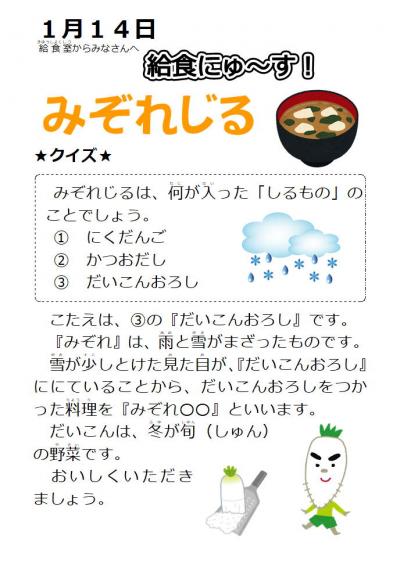 １月１４日
給食室からみなさんへ
給食にゅ～す！
みぞれじる
★クイズ★
みぞれじるは、何が入った「しるもの」の
ことでしょう。
①　にくだんご
②　かつおだし
③　だいこんおろし
こたえは、③の『だいこんおろし』です。
『みぞれ』は、雨と雪がまざったものです。
雪が少しとけた見た目が、『だいこんおろし』
ににていることから、だいこんおろしをつか
った料理を『みぞれ○○』といいます。
だいこんは、冬が旬（しゅん）
の野菜です。
おいしくいただき
ましょう。